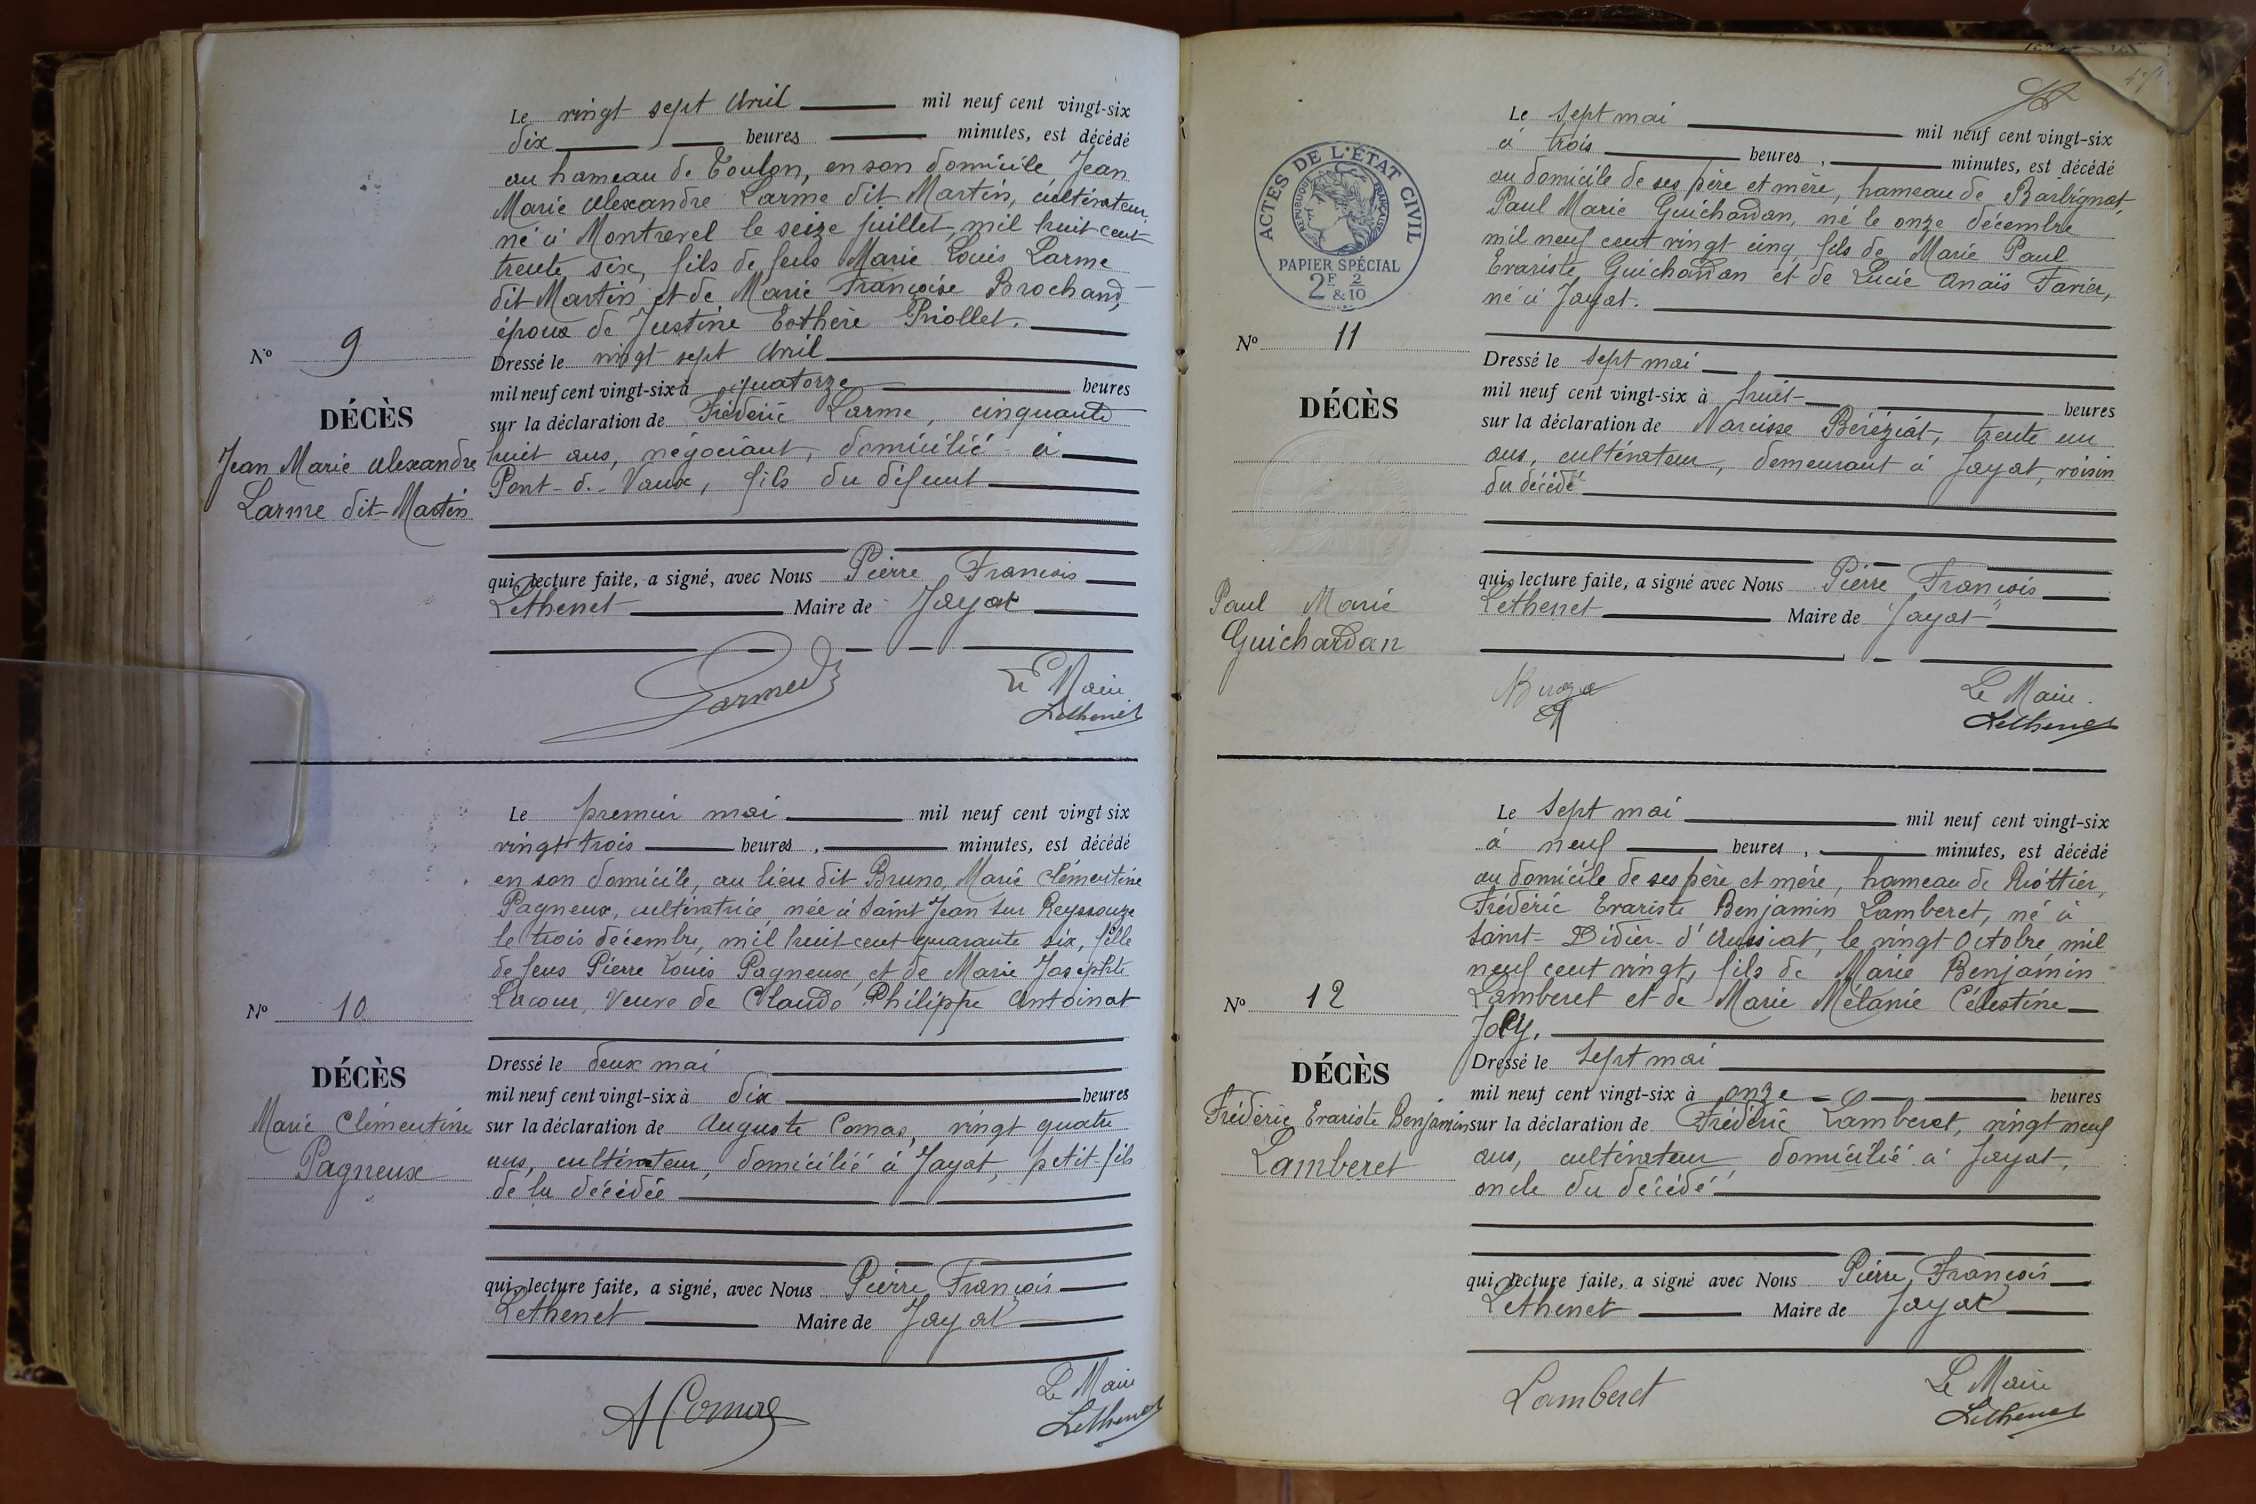 Le vingt sept Avril mil neuf cent vingt-six
dix heures minutes, est décédé
au hameau de Toulon, en son domicile, Jean
Marie Alexandre Larme dit Martin, cultivateur,
né à Montrevel le seize juillet, mil huit cent
trente six, fils de feus Marie Louis Larme
dit Martin et de Marie Françoise Brochand,
époux de Justine Esthère Priollet.
Dressé le vingt sept Avril
mil neuf cent vingt-six à quatorze heures
sur la déclaration de Frédéric Larme, cinquante
huit ans, négociant, domicilié à
Pont-de-Vaux, fils du défunt
qui, lecture faite, a signé, avec Nous Pierre François
Lethenet Maire de Jayat
Le Maire
Lethenet
No 9
DÉCÈS
Jean Marie Alexandre
Larme dit Martin
Le premier mai mil neuf cent vingt six
vingt trois heures, minutes, est décédé
en son domicile, au lieu dit Bruno, Marie Clémentine
Pagneux, cultivatrice, née à Saint Jean sur Reyssouze
le trois décembre, mil huit cent quarante six, fille
de feus Pierre Louis Pagneux et de Marie Josephte
Lacour, Veuve de Claude Philippe Antoinat
Dressé le deux mai
mil neuf cent vingt-six à dix heures
sur la déclaration de Auguste Comas, vingt quatre
ans, cultivateur, domicilié à Jayat, petit fils
de la décédée
qui, lecture faite, a signé, avec Nous Pierre François
Lethenet Maire de Jayat
A Comas
Le Maire
Lethenet
No 10
DÉCÈS
Marie Clémentine
Pagneux
ACTES DE L'ÉTAT CIVIL
RÉPUBLIQUE FRANÇAISE
PAPIER SPÉCIAL
2F 2
&10
Le sept mai mil neuf cent vingt-six
à trois heures, minutes, est décédé
au domicile de ses père et mère, hameau de Barbignat,
Paul Marie Guichardan, né le onze décembre
mil neuf cent vingt cinq, fils de Marie Paul
Evariste Guichardan et de Lucie Anaïs Favier,
né à Jayat.
Dressé le sept mai
mil neuf cent vingt-six à huit heures
sur la déclaration de Narcisse Béréziat, trente un
ans, cultivateur, demeurant à Jayat, voisin
du décédé
qui, lecture faite, a signé avec Nous Pierre François
Lethenet Maire de Jayat
Le Maire.
Lethenet
No 11
DÉCÈS
Paul Marie
Guichardan
Le sept mai mil neuf cent vingt-six
à neuf heures, minutes, est décédé
au domicile de ses père et mère, hameau de Riottier,
Frédéric Evariste Benjamin Lamberet, né à
Saint-Didier-d'Aussiat, le vingt Octobre mil
neuf cent vingt, fils de Marie Benjamin
Lamberet et de Marie Mélanie Célestine
Joly.
Dressé le sept mai
mil neuf cent vingt-six à onze heures
sur la déclaration de Frédéric Lamberet, vingt neuf
ans, cultivateur, domicilié à Jayat,
oncle du décédé
qui, lecture faite, a signé avec Nous Pierre François
Lethenet Maire de Jayat
Lamberet
Le Maire
Lethenet
No 12
DÉCÈS
Frédéric Evariste Benjamin
Lamberet